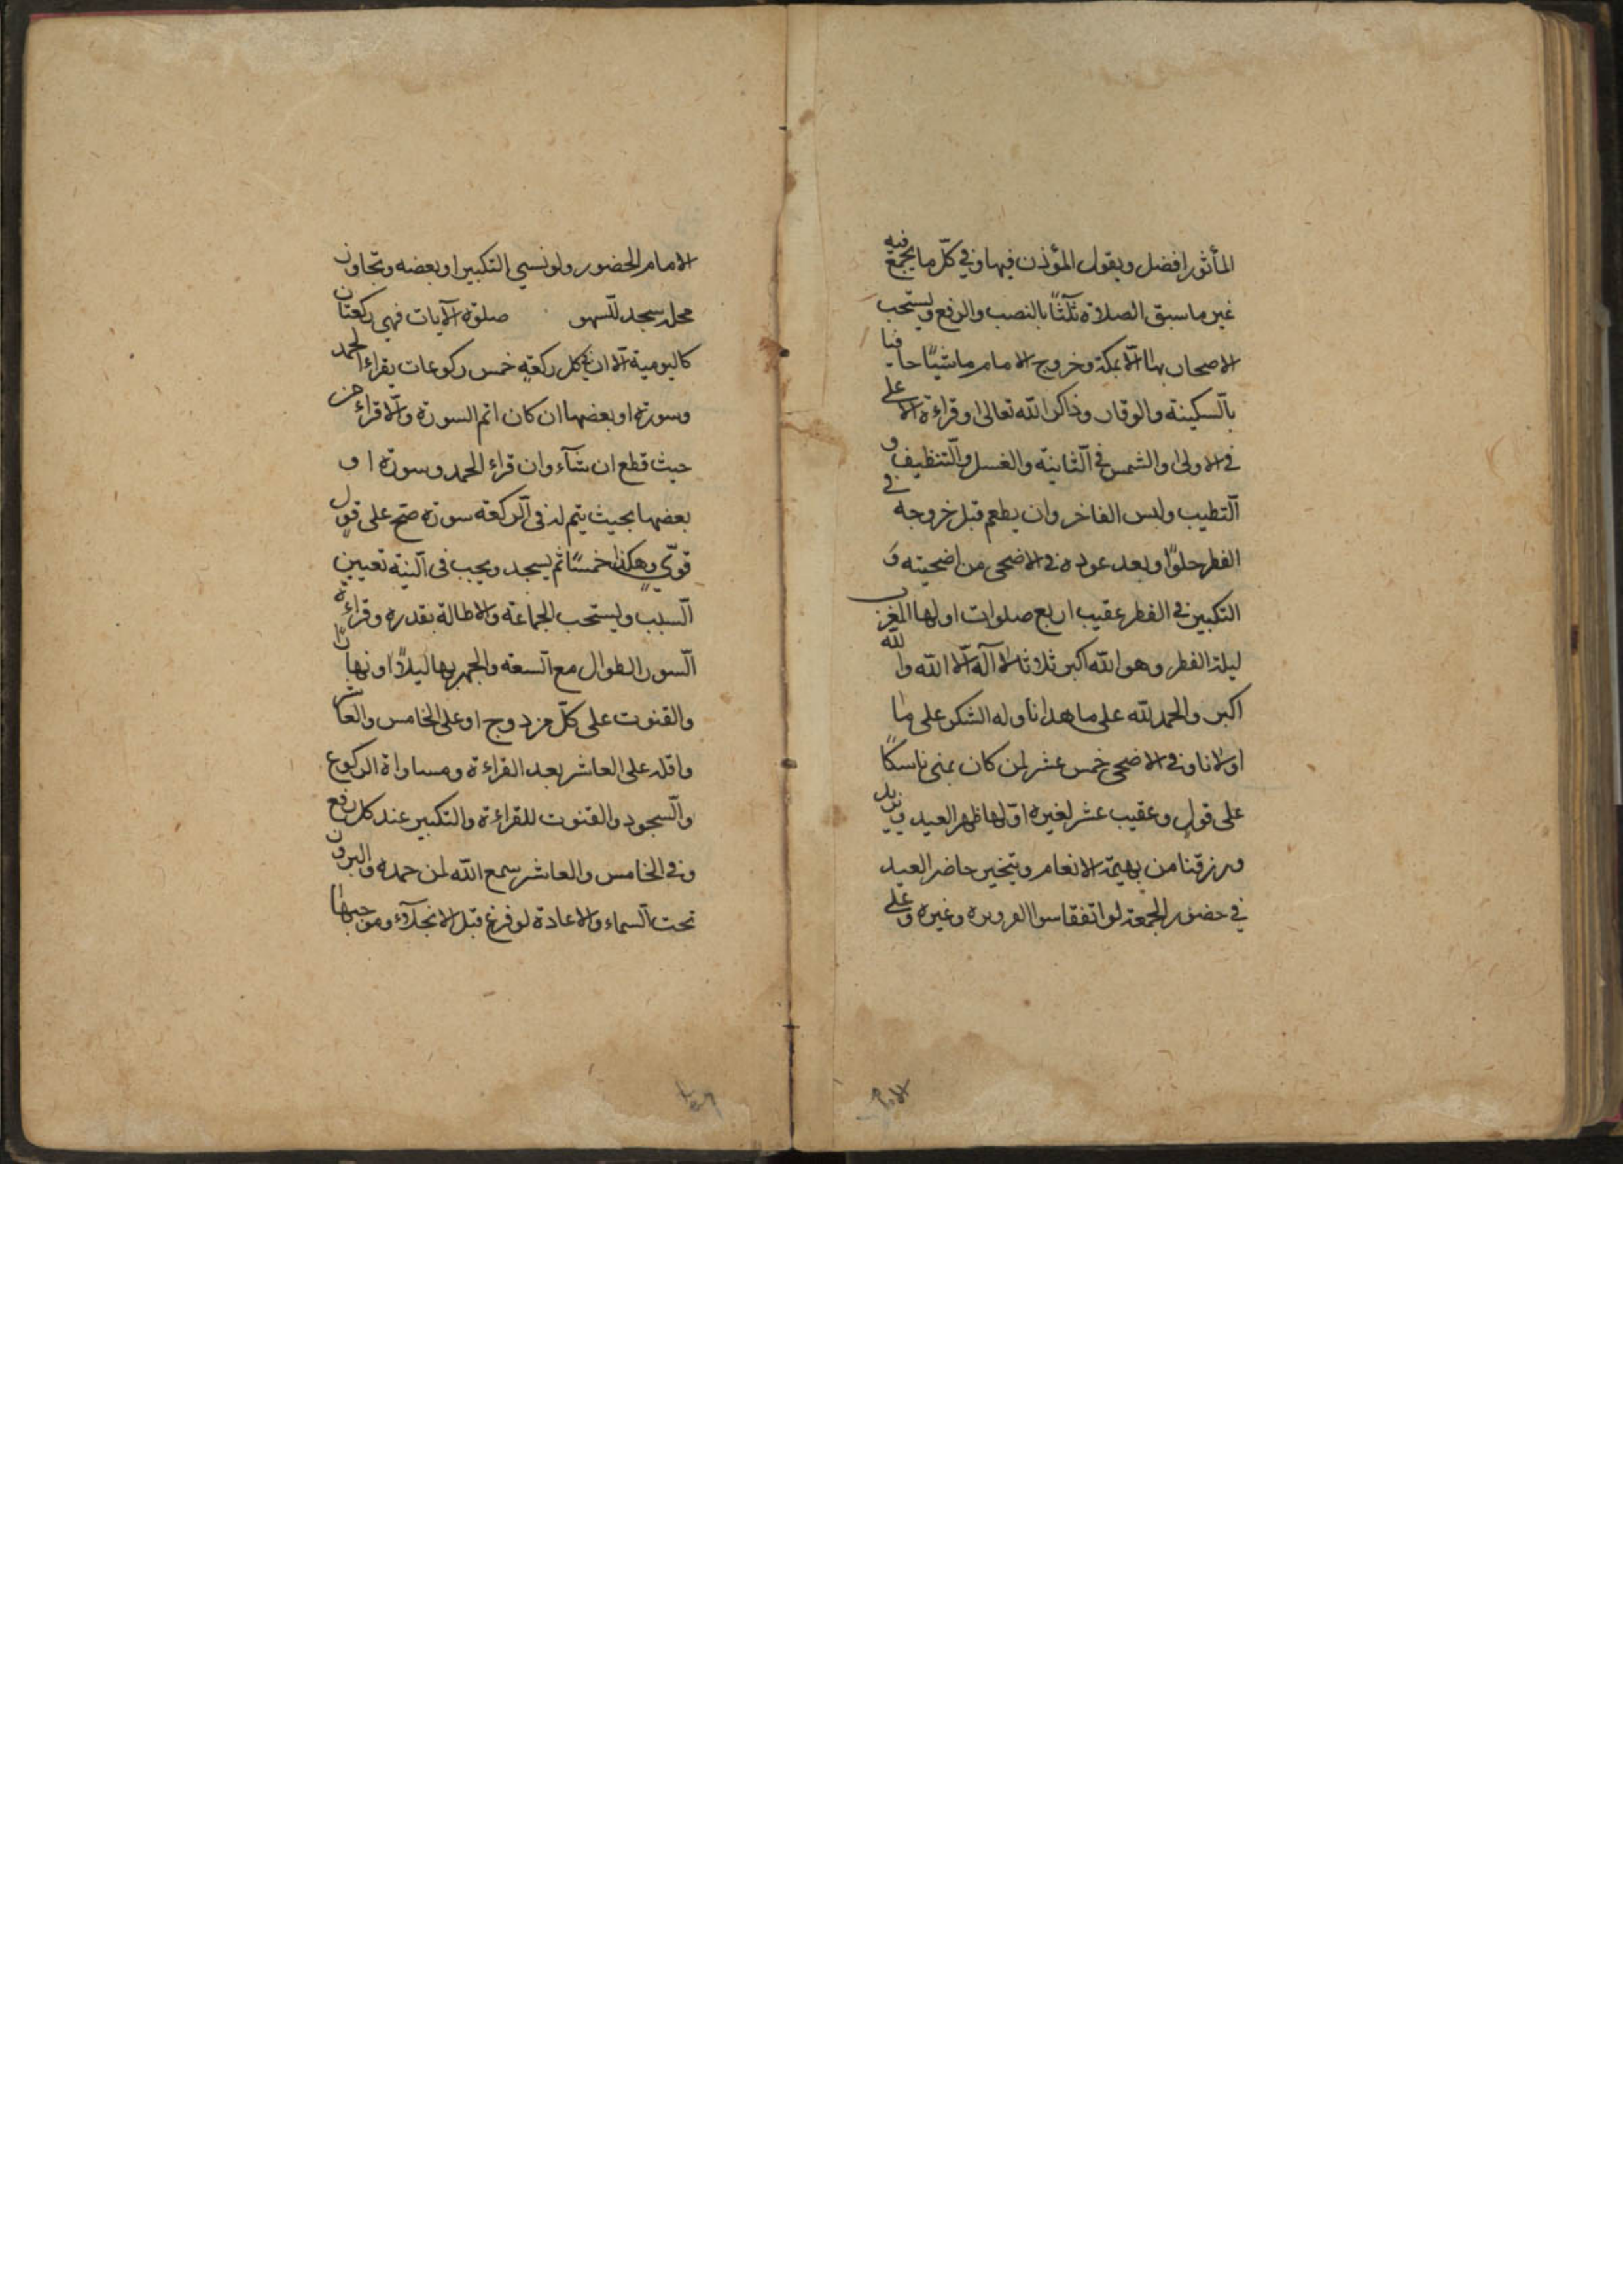 المأثور افضل ويقول المؤذن فيها وفي كلّ ما يجمع فيه
غير ما سبق الصلاة ثلثًا بالنصب والرفع ويستحب
الاصحار بها الّا بمكة وخروج الامام ماشيًا حافيا
بالسّكينة والوقار وذاكرا لله تعالى وقراءة الاعلى
في الاولى والشمس في الثّانية والغسل والتّنظيف و
التّطيب ولبس الفاخر وان يطعم قبل خروجه في
الفطر حلوًا وبعد عوده في الاضحى من اضحيته و
التكبير في الفطر عقيب اربع صلوات اولها المغرب
ليلة الفطر وهو الله اكبر ثلاثا لا آله الّا الله والله
اكبر والحمد لله على ما هدانا وله الشكر على ما
اولانا وفي الاضحى خمس عشر لمن كان بمنى ناسكًا
على قول وعقيب عشر لغيره اوّلها ظهر العيد ويزيد
ورزقنا من بهيمة الانعام ويتخير حاضر العيد
في حضور الجمعة لو اتفقا سوا القروي وغيره وعلى
الامام الحضور ولو نسي التكبير او بعضه وتجاوز
محله سجد للسّهو صلوة الآيات فهي ركعتان
كاليومية الّا ان في كل ركعة خمس ركوعات يقراء الحمد
وسورة او بعضها ان كان اتم السورة والّا قراء من
حيث قطع ان شآء وان قراء الحمد وسورة ا و
بعضها بحيث يتم له في الرّكعة سورة صحّ على قول
قويّ وهكذا خمسًا ثم يسجد ويجب في النّية تعيين
السّبب ويستحب الجماعة والاطالة بقدره وقراءة
السّور الطوال مع السّعة والجهر بها ليلًا او نهارًا
والقنوت على كلّ مزدوج او على الخامس والعاشر
واقله على العاشر بعد القراءة ومساواة الركوع
والسّجود والقنوت للقراءة والتكبير عند كل رفع
وفي الخامس والعاشر سمع الله لمن حمده والبروز
تحت السّماء والاعادة لو فرغ قبل الانجلآء وموجبها